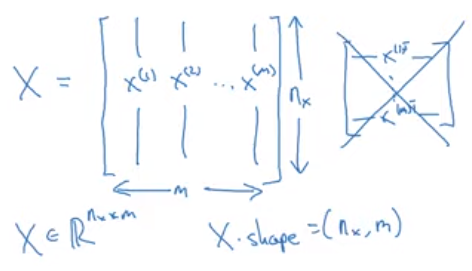 X = [ x^(1) x^(2) ... x^(m) ] n_x
x^(1)T
x^(m)T
m
X ∈ ℝ^(n_x × m) X.shape = (n_x, m)